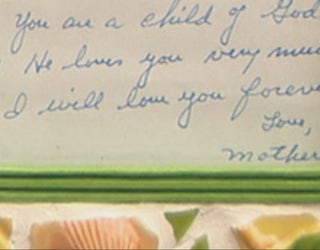 You are a child of God
He loves you very muc
I will love you foreve
Love,
Mother